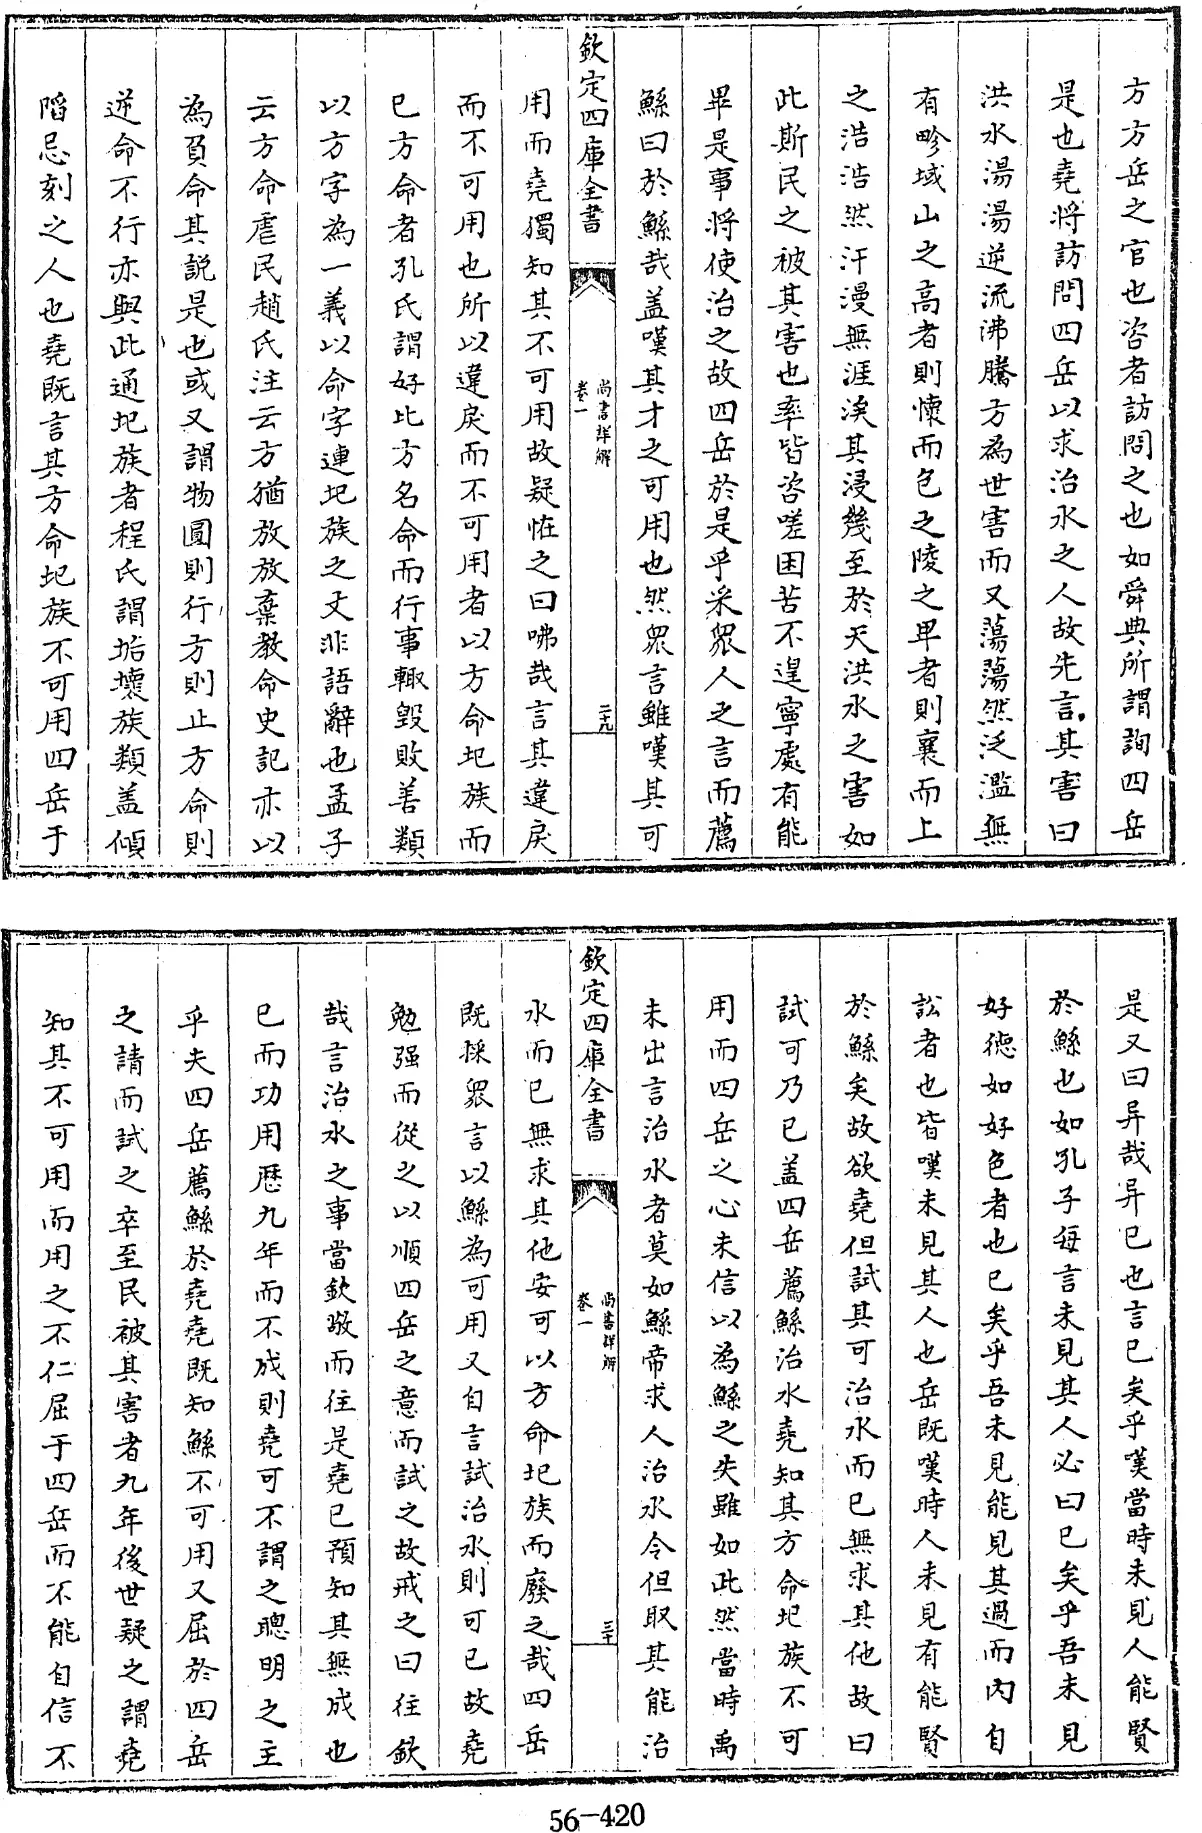 方方岳之官也咨者訪問之也如舜典所謂詢四岳
是也堯將訪問四岳以求治水之人故先言其害曰
洪水湯湯逆流沸騰方為世害而又蕩蕩然泛濫無
有畛域山之高者則懷而包之陵之卑者則襄而上
之浩浩然汗漫無涯涘其浸幾至於天洪水之害如
此斯民之被其害也率皆咨嗟困苦不遑寧處有能
畢是事將使治之故四岳於是乎采衆人之言而薦
鯀曰於鯀哉盖嘆其才之可用也然衆言雖嘆其可
欽定四庫全書
尚書詳解
卷一
二十九
用而堯獨知其不可用故疑怪之曰咈哉言其違戾
而不可用也所以違戾而不可用者以方命圮族而
已方命者孔氏謂好比方名命而行事輒毀敗善類
以方字為一義以命字連圮族之文非語辭也孟子
云方命虐民趙氏注云方猶放放棄教命史記亦以
為負命其說是也或又謂物圓則行方則止方命則
逆命不行亦與此通圮族者程氏謂圮壞族類盖傾
陷忌刻之人也堯既言其方命圮族不可用四岳于
是又曰异哉异已也言已矣乎嘆當時未見人能賢
於鯀也如孔子每言未見其人必曰已矣乎吾未見
好德如好色者也已矣乎吾未見能見其過而內自
訟者也皆嘆未見其人也岳既嘆時人未見有能賢
於鯀矣故欲堯但試其可治水而已無求其他故曰
試可乃已盖四岳薦鯀治水堯知其方命圮族不可
用而四岳之心未信以為鯀之失雖如此然當時禹
未出言治水者莫如鯀帝求人治水令但取其能治
欽定四庫全書
尚書詳解
卷一
三十
水而已無求其他安可以方命圮族而廢之哉四岳
既採衆言以鯀為可用又自言試治水則可已故堯
勉强而從之以順四岳之意而試之故戒之曰往欽
哉言治水之事當欽敬而往是堯已預知其無成也
已而功用歷九年而不成則堯可不謂之聰明之主
乎夫四岳薦鯀於堯堯既知鯀不可用又屈於四岳
之請而試之卒至民被其害者九年後世疑之謂堯
知其不可用而用之不仁屈于四岳而不能自信不
56-420